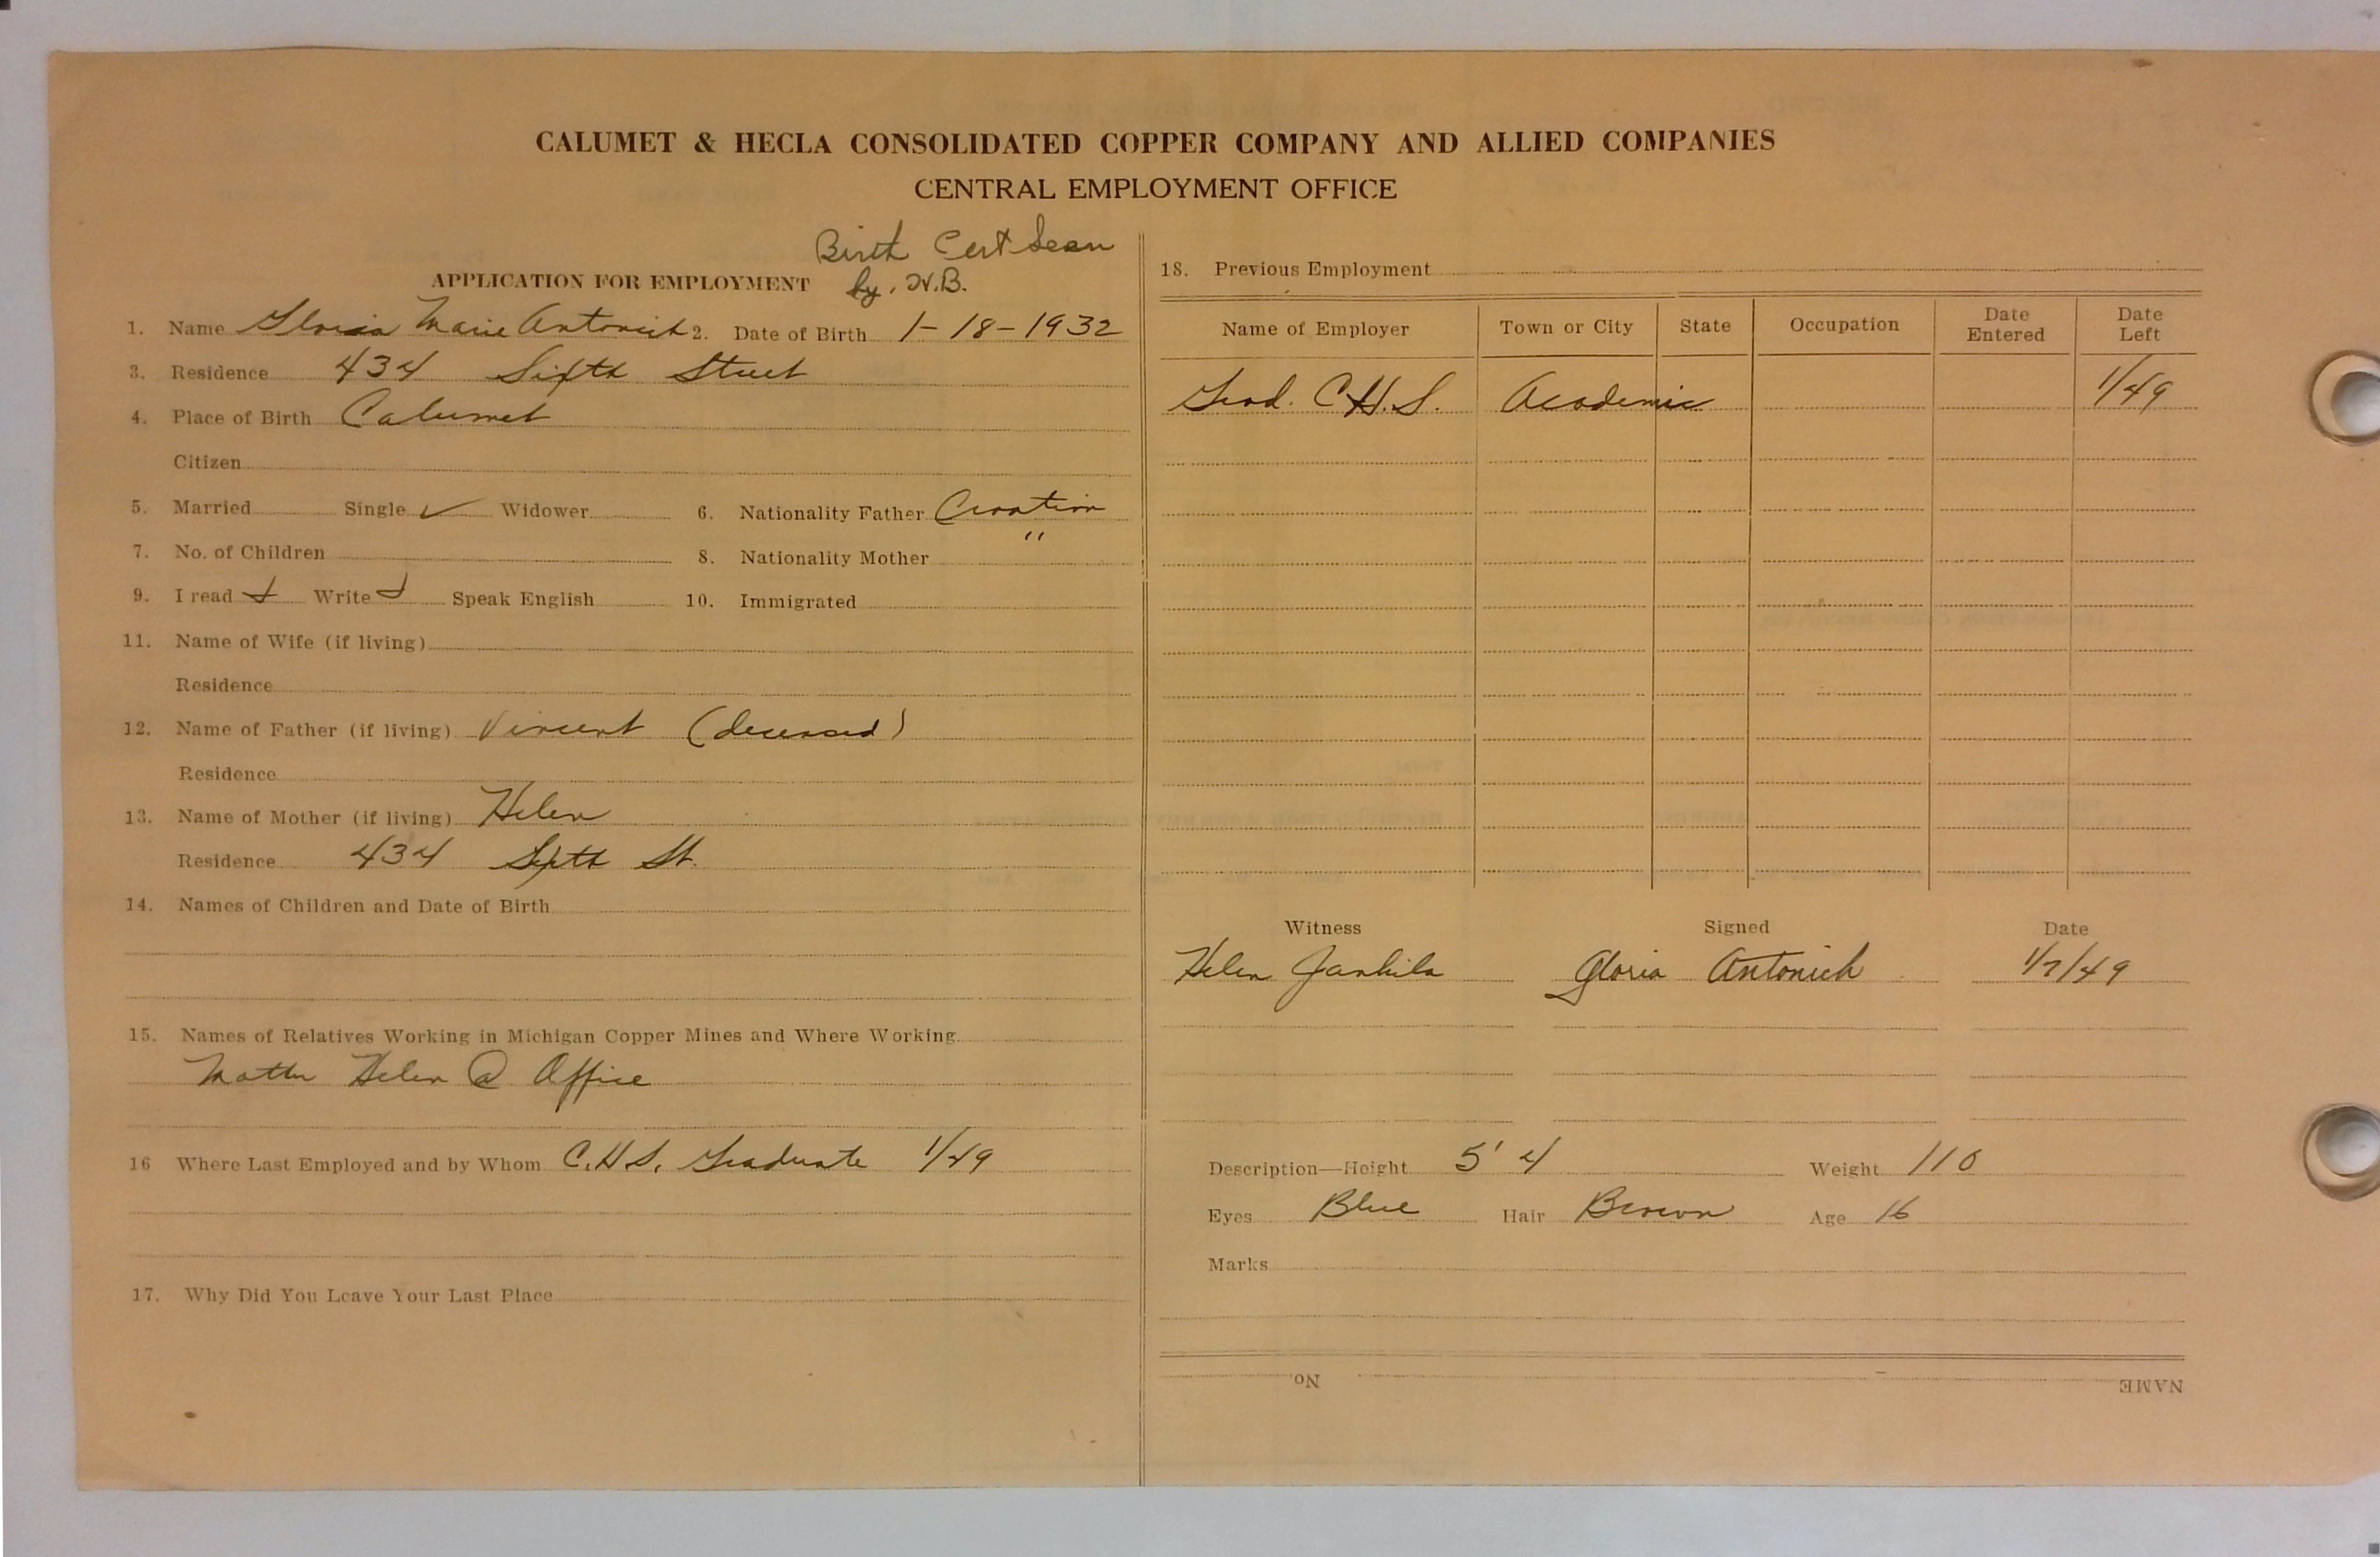 CALUMET & HECLA CONSOLIDATED COPPER COMPANY AND ALLIED COMPANIES
CENTRAL EMPLOYMENT OFFICE
Birth Cert Seen
APPLICATION FOR EMPLOYMENT by. H.B.
1. Name Gloria Marie Antonich 2. Date of Birth 1-18-1932
3. Residence 434 Sixth Street
4. Place of Birth Calumet
Citizen
5. Married Single ✓ Widower 6. Nationality Father Croation
7. No. of Children 8. Nationality Mother "
9. I read ✓ Write ✓ Speak English 10. Immigrated
11. Name of Wife (if living)
Residence
12. Name of Father (if living) Vincent (deceased)
Residence
13. Name of Mother (if living) Helen
Residence 434 Sixth St.
14. Names of Children and Date of Birth
15. Names of Relatives Working in Michigan Copper Mines and Where Working
Mother Helen @ Office
16 Where Last Employed and by Whom C.H.S. Graduate 1/49
17. Why Did You Leave Your Last Place
18. Previous Employment
Name of Employer Town or City State Occupation Date Entered Date Left
Grad. C.H.S. Academic 1/49
Witness Signed Date
Helen Gloria Antonich 1/7/49
Description—Height 5' 4 Weight 110
Eyes Blue Hair Brown Age 16
Marks
NAME No.